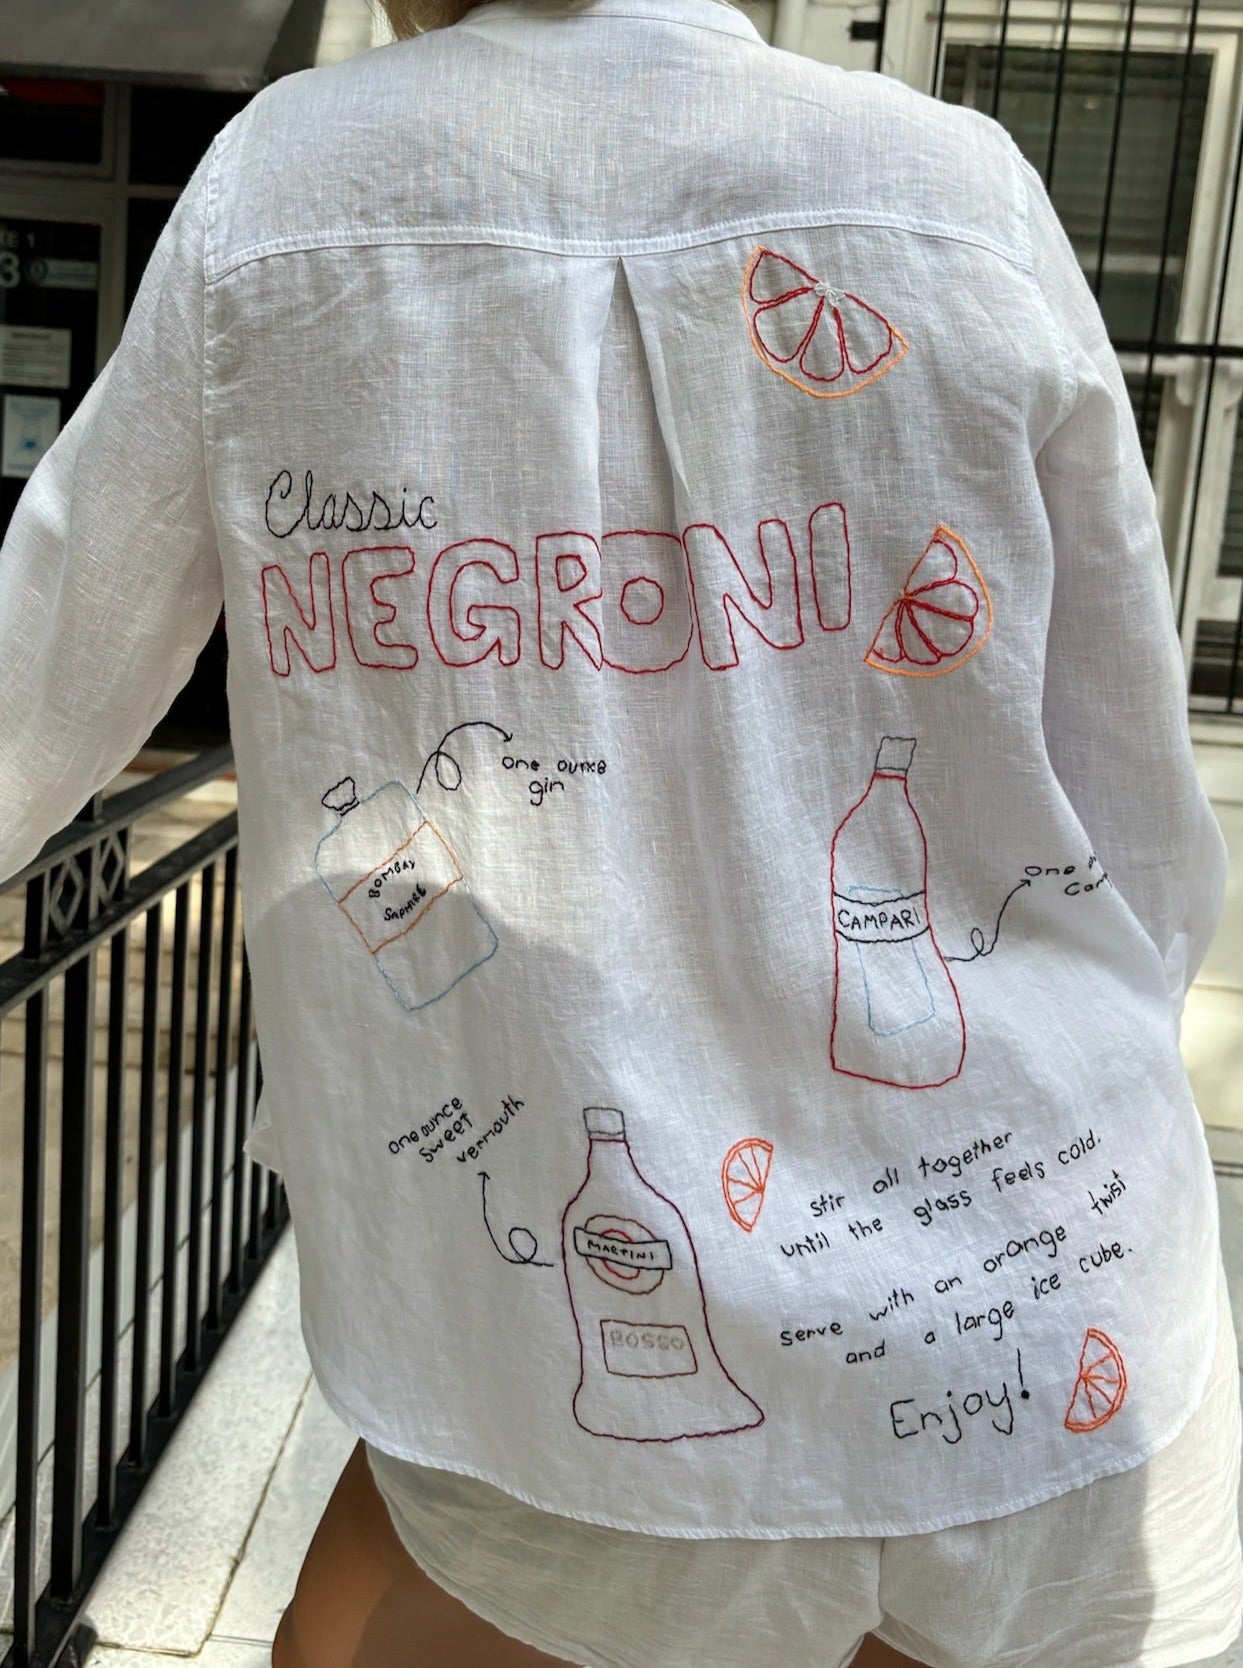 Classic
NEGRONI
one ounce
gin
BOMBAY
SAPHIRE
One
CAMPARI
one ounce
sweet
vermouth
MARTINI
ROSSO
stir all together
until the glass feels cold.
serve with an orange twist
and a large ice cube.
Enjoy!